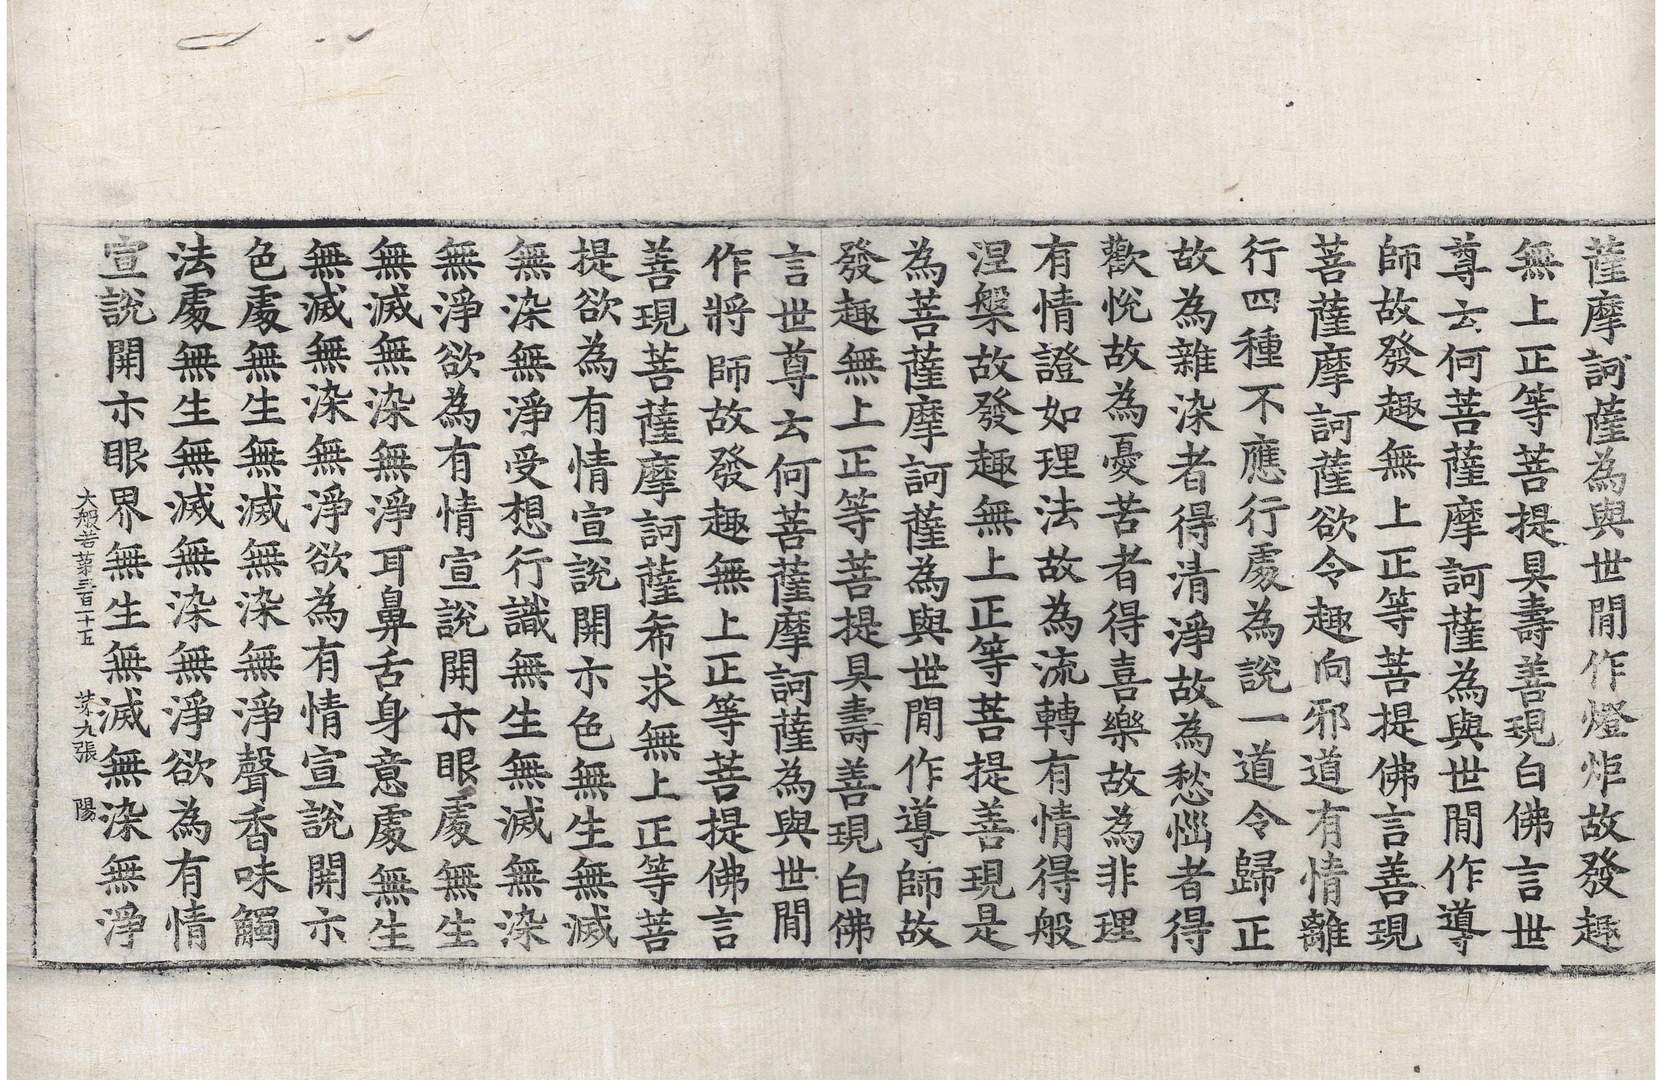 薩摩訶薩為與世間作燈炬故發趣
無上正等菩提具壽善現白佛言世
尊云何菩薩摩訶薩為與世間作導
師故發趣無上正等菩提佛言善現
菩薩摩訶薩欲令趣向邪道有情離
行四種不應行處為說一道令歸正
故為雜染者得清淨故為愁惱者得
歡悅故為憂苦者得喜樂故為非理
有情證如理法故為流轉有情得般
涅槃故發趣無上正等菩提善現是
為菩薩摩訶薩為與世間作導師故
發趣無上正等菩提具壽善現白佛
言世尊云何菩薩摩訶薩為與世間
作將師故發趣無上正等菩提佛言
善現菩薩摩訶薩希求無上正等菩
提欲為有情宣說開示色無生無滅
無染無淨受想行識無生無滅無染
無淨欲為有情宣說開示眼處無生
無滅無染無淨耳鼻舌身意處無生
無滅無染無淨欲為有情宣說開示
色處無生無滅無染無淨聲香味觸
法處無生無滅無染無淨欲為有情
宣說開示眼界無生無滅無染無淨
大般若第三百十五 第九張 陽